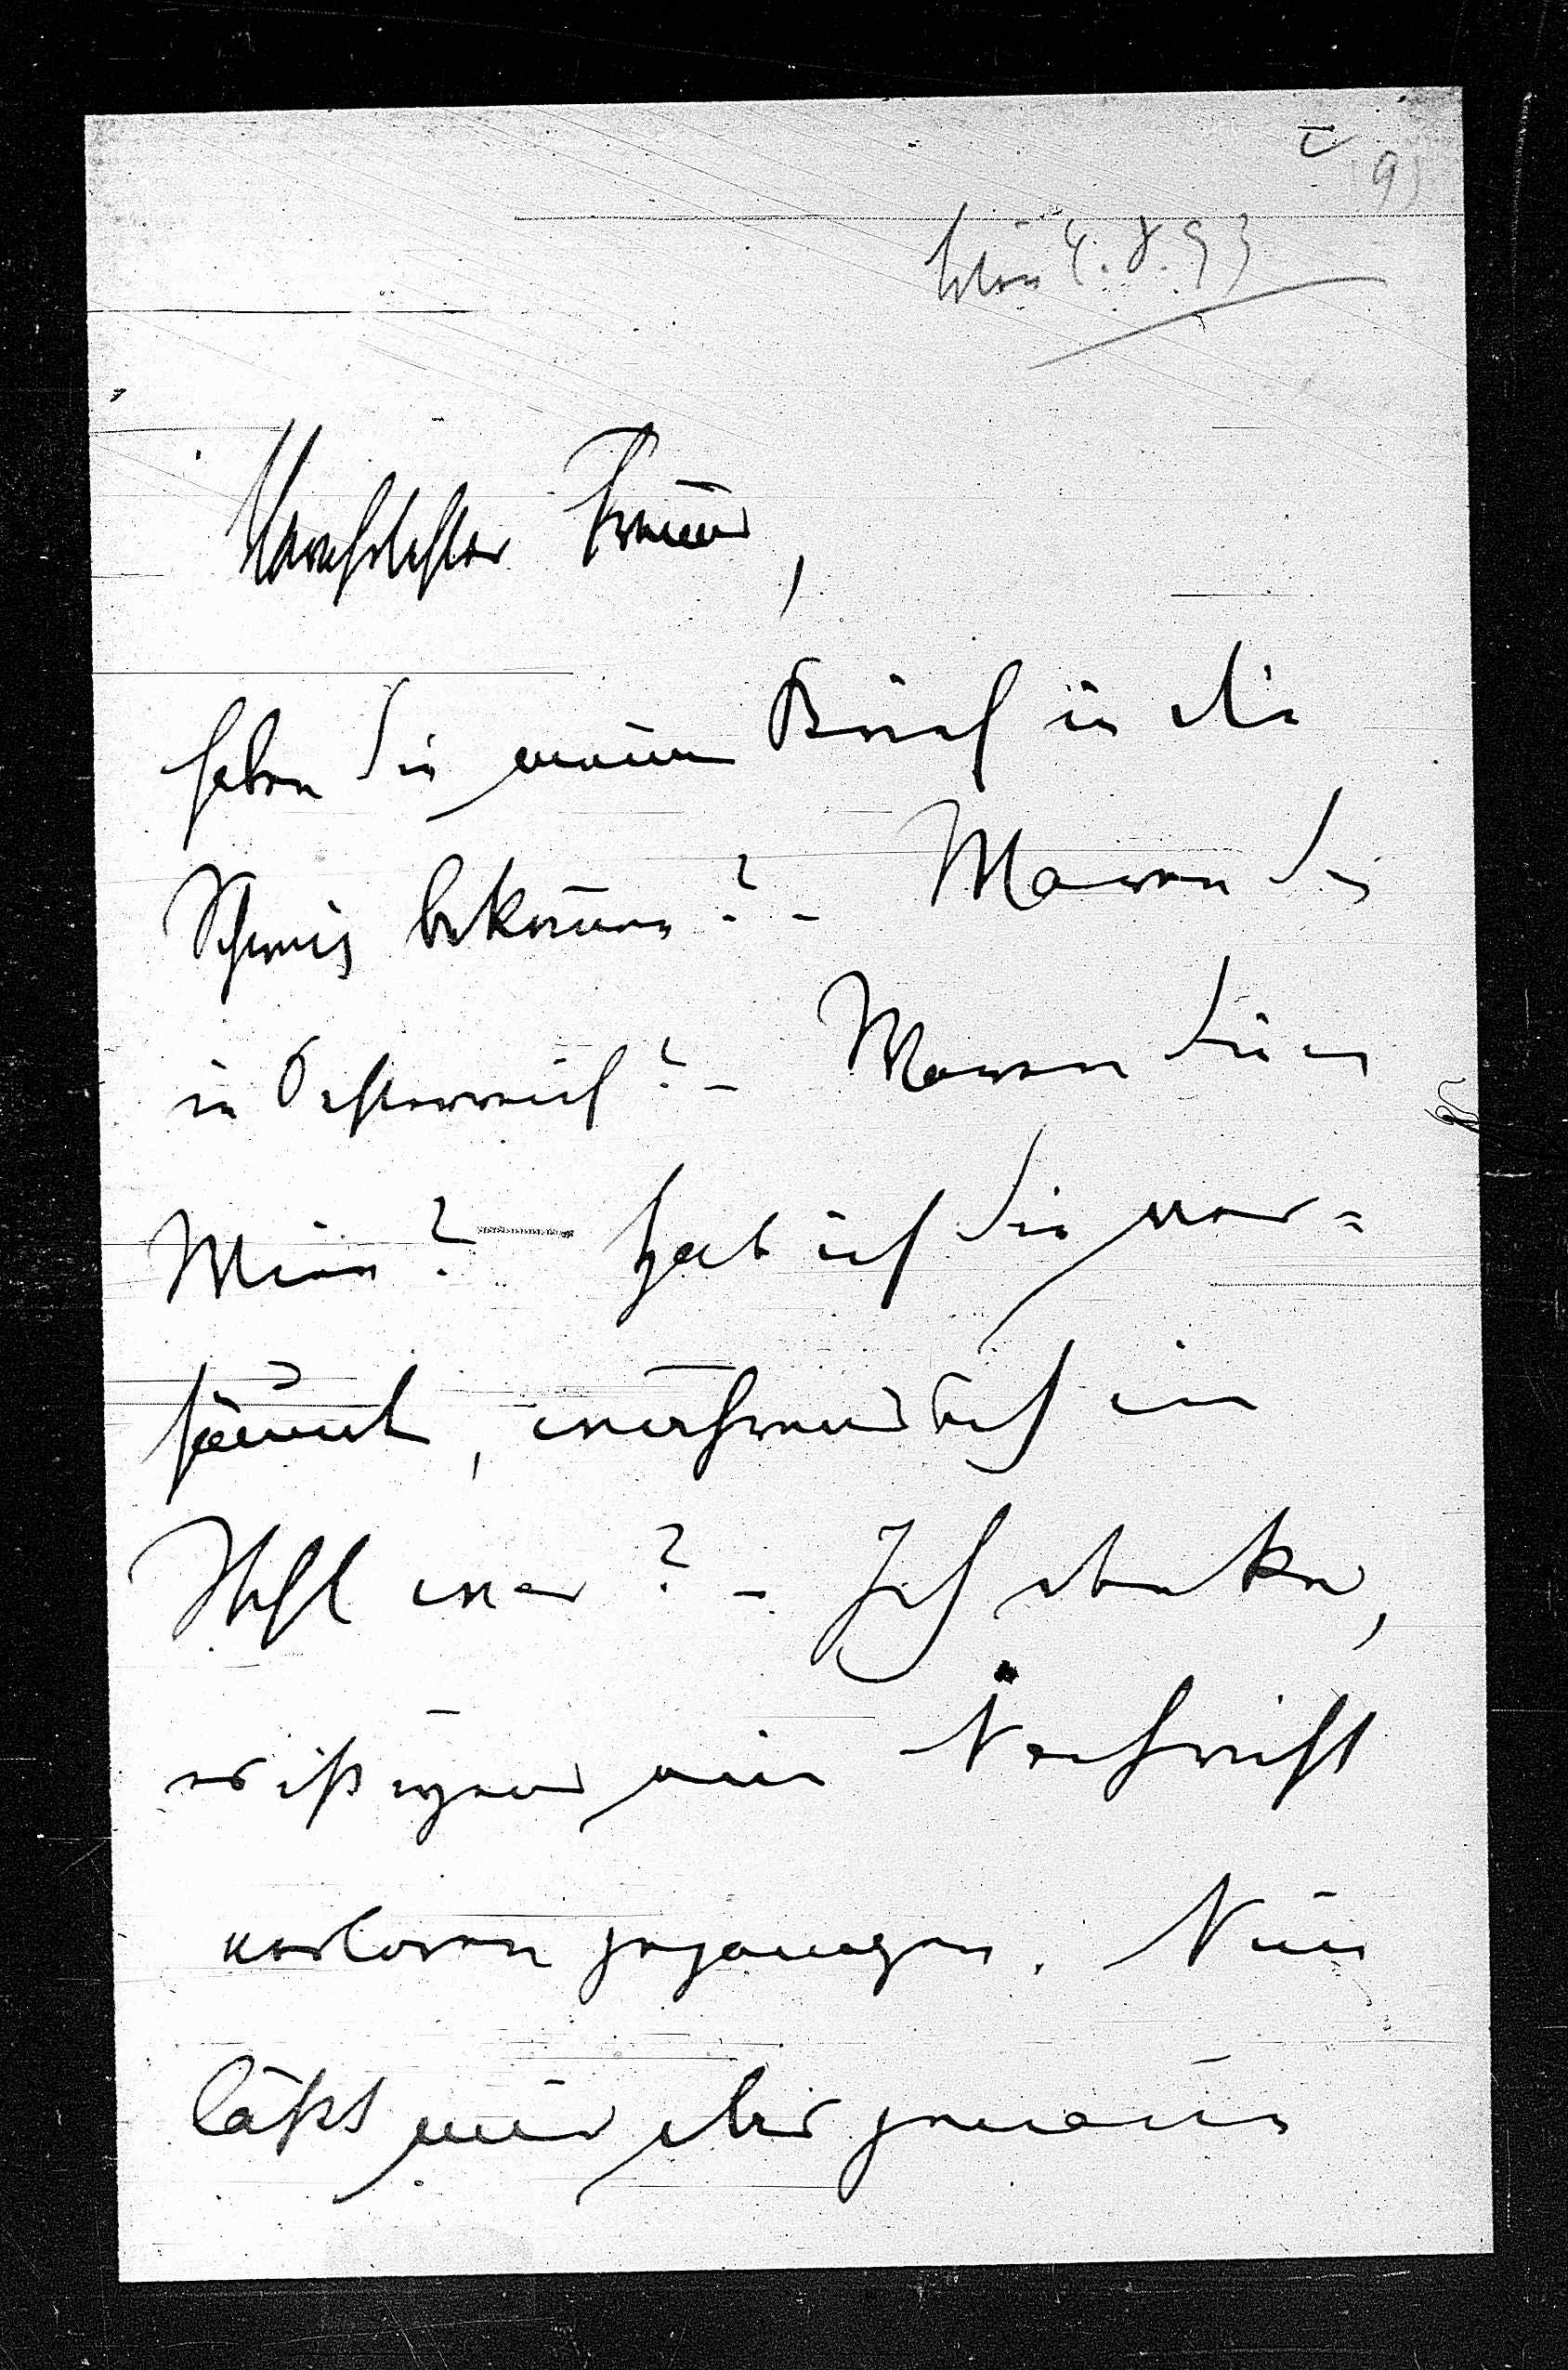 9)
Wien 4. 8. 93
Verehrtester Freund,
haben Sie meinen Brief in die
Schweiz bekommen? – Waren Sie
in Oesterreich? – Waren Sie in
Wien? – Hab ich Sie ver=
säumt, während ich in
Ischl war? – Ich denke,
es ist irgend eine Nachricht
verloren gegangen. Nun
läßt mir aber